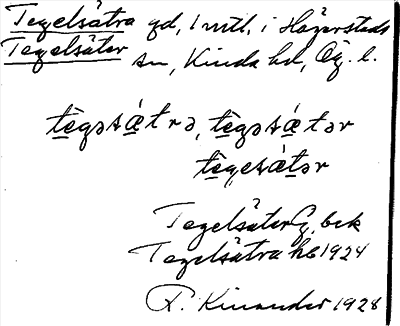 Tegelsätra gd, 1 mtl, i Hägerstads
Tegelsäter sn, Kinda hd, Ög. l.
tègəsǽtrə, tègəsǽtər
tègesǽtər
Tegelsäter G. bek
Tegelsätra hs 1924
R. Kinander 1928